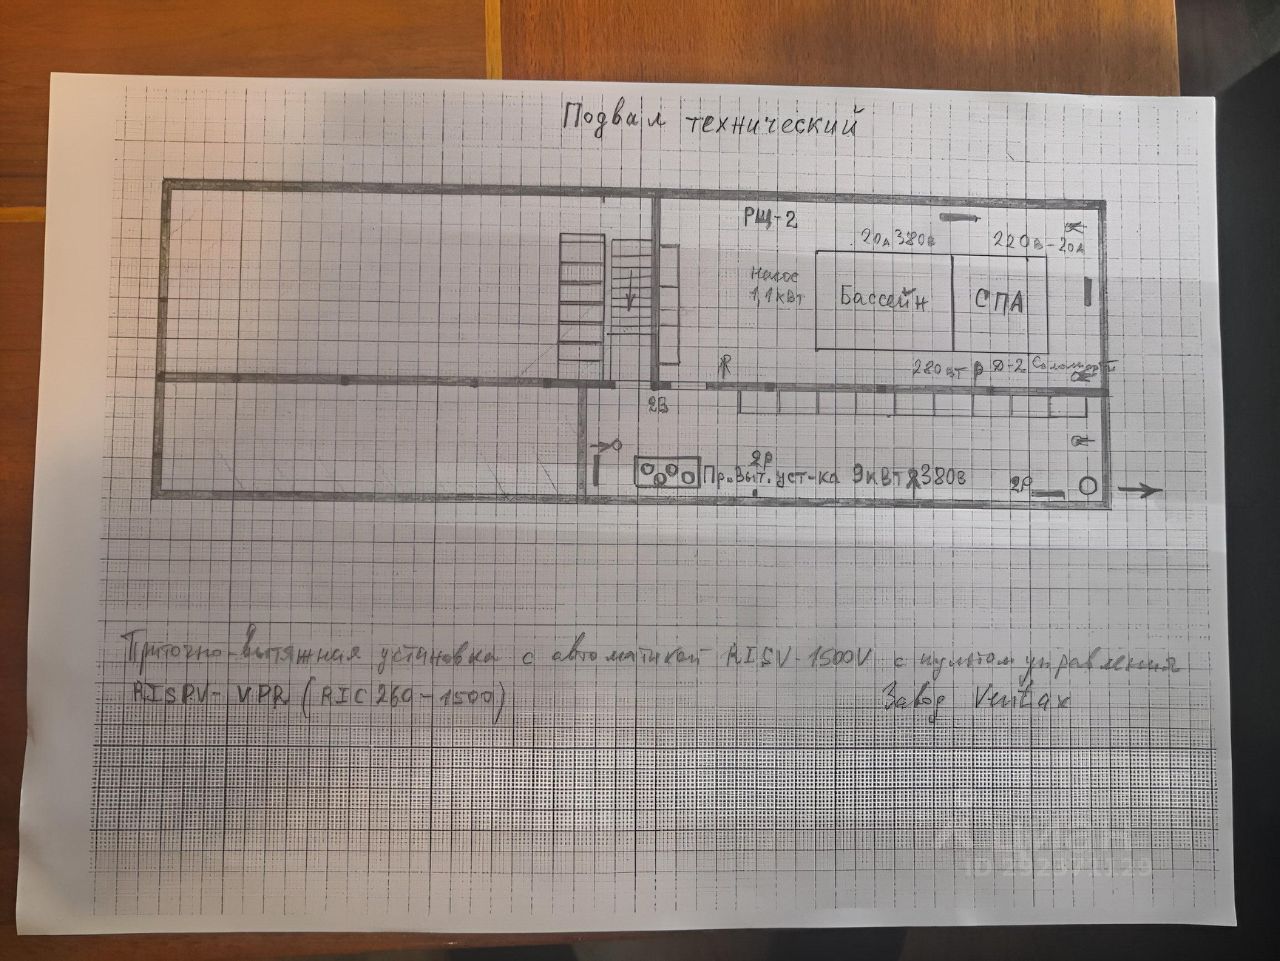 Подвал технический
РЩ-2
20А 380В
220В-20А
Насос
1,1кВт
Бассейн
СПА
280 вт
Д-2
2В
2Р
Пр.Выт. уст-ка 9кВт 380В
2Р
Приточно-вытяжная установка с автоматикой RISV-1500V с пультом управления
RISPV-VPR (RIC 260-1500)
Завод Ventax
циан